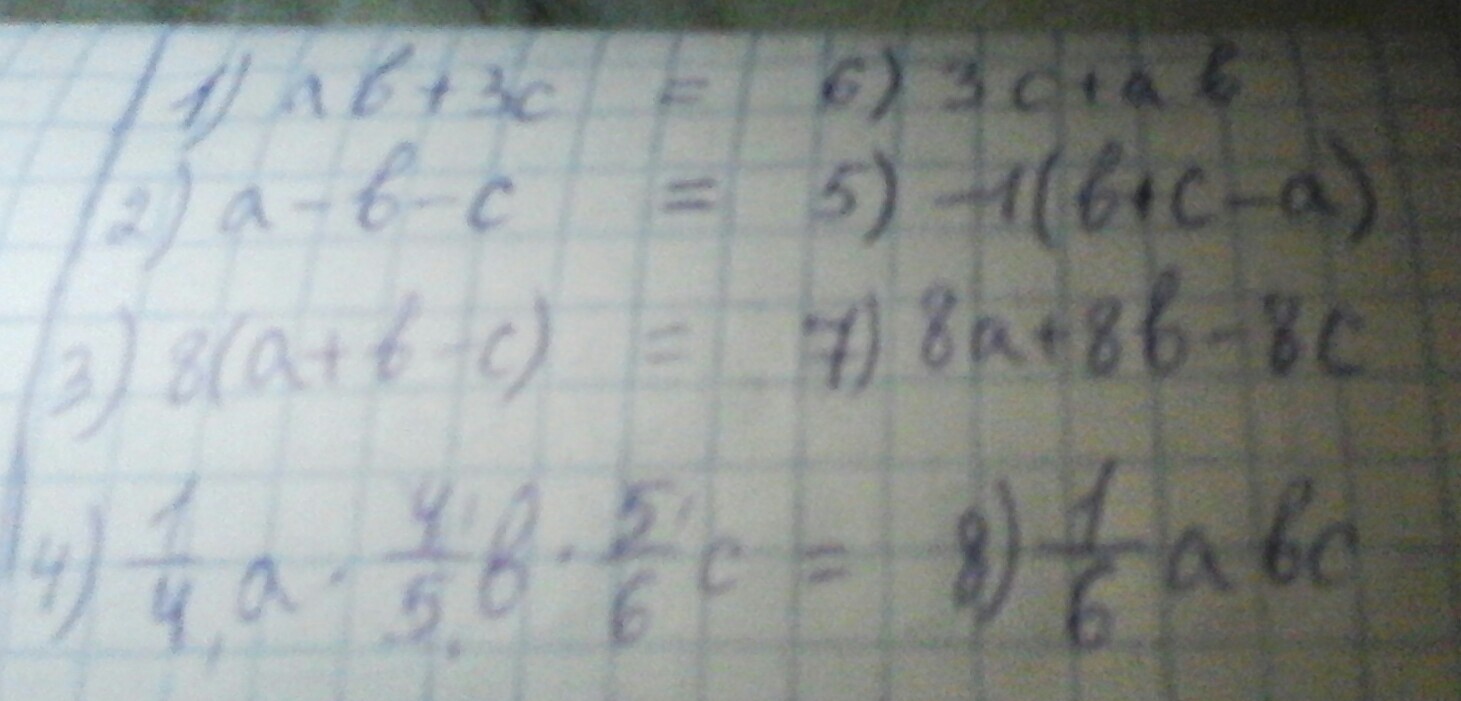 1) ab+3c = 6) 3c+ab
2) a-b-c = 5) -1(b+c-a)
3) 8(a+b-c) = 7) 8a+8b-8c
4) 1/4 a · 4/5 b · 5/6 c = 8) 1/6 abc